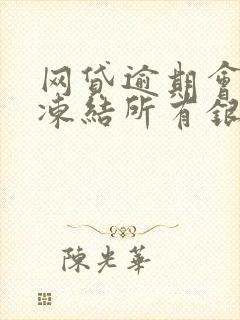 网贷逾期會
凍結所有銀
陳光華